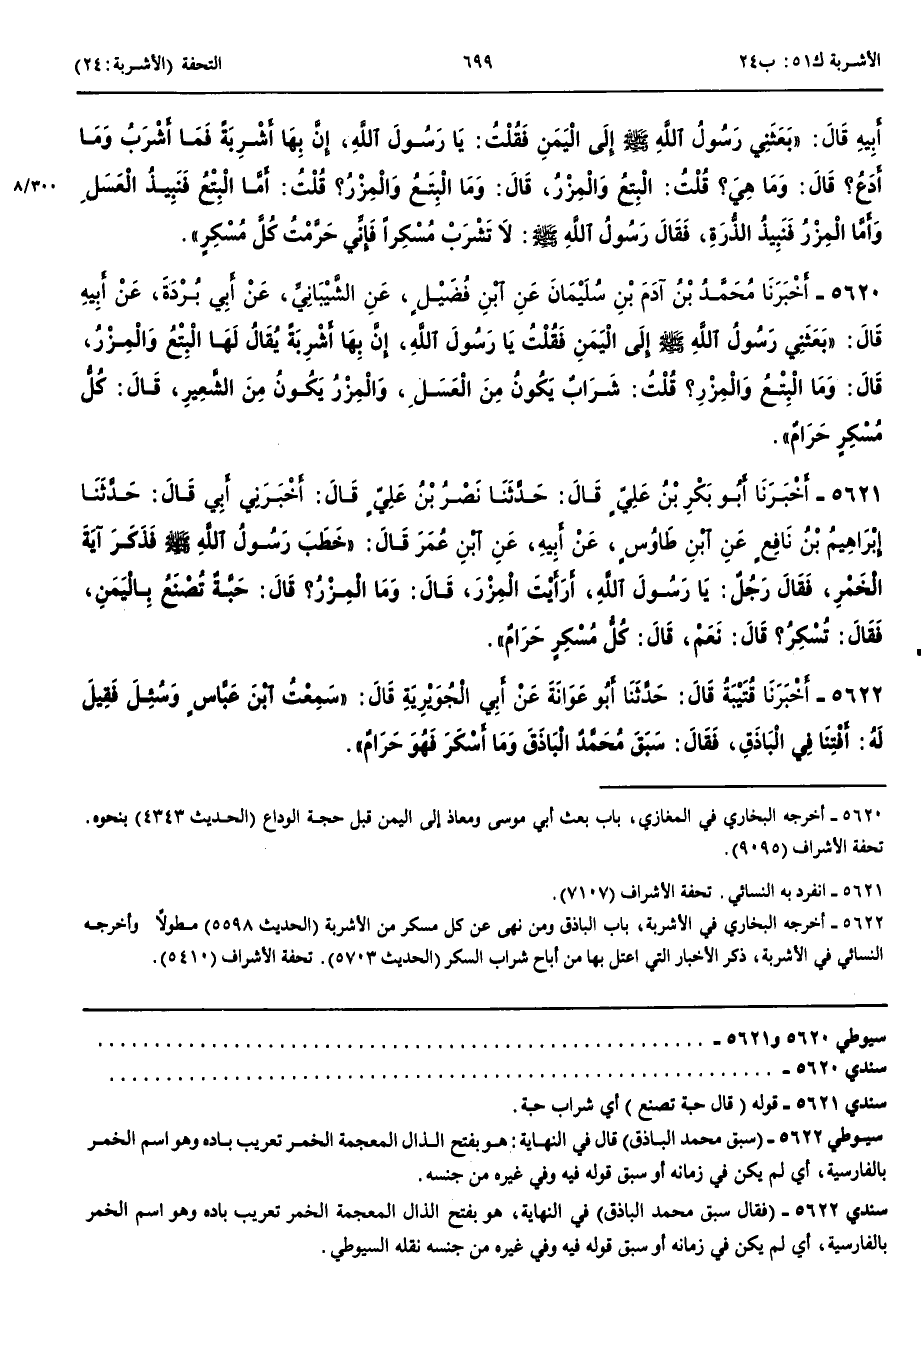 الأشربة ك٥١: ب٢٤ ٦٩٩ التحفة (الأشربة: ٢٤)
أَبِيهِ قَالَ: «بَعَثَنِي رَسُولُ ٱللَّهِ ﷺ إِلَى الْيَمَنِ فَقُلْتُ: يَا رَسُولَ ٱللَّهِ، إِنَّ بِهَا أَشْرِبَةً فَمَا أَشْرَبُ وَمَا
أَدَعُ؟ قَالَ: وَمَا هِيَ؟ قُلْتُ: الْبِتْعُ وَالْمِزْرُ، قَالَ: وَمَا الْبِتْعُ وَالْمِزْرُ؟ قُلْتُ: أَمَّا الْبِتْعُ فَنَبِيذُ الْعَسَلِ ٨/٣٠٠
وَأَمَّا الْمِزْرُ فَنَبِيذُ الذُّرَةِ، فَقَالَ رَسُولُ ٱللَّهِ ﷺ: لَا تَشْرَبْ مُسْكِراً فَإِنِّي حَرَّمْتُ كُلَّ مُسْكِرٍ».
٥٦٢٠ ـ أَخْبَرَنَا مُحَمَّدُ بْنُ آدَمَ بْنِ سُلَيْمَانَ عَنِ ٱبْنِ فُضَيْلٍ، عَنِ الشَّيْبَانِيِّ، عَنْ أَبِي بُرْدَةَ، عَنْ أَبِيهِ
قَالَ: «بَعَثَنِي رَسُولُ ٱللَّهِ ﷺ إِلَى الْيَمَنِ فَقُلْتُ يَا رَسُولَ ٱللَّهِ، إِنَّ بِهَا أَشْرِبَةً يُقَالُ لَهَا الْبِتْعُ وَالْمِزْرُ،
قَالَ: وَمَا الْبِتْعُ وَالْمِزْرِ؟ قُلْتُ: شَرَابٌ يَكُونُ مِنَ الْعَسَلِ، وَالْمِزْرُ يَكُونُ مِنَ الشَّعِيرِ، قَالَ: كُلُّ
مُسْكِرٍ حَرَامٌ».
٥٦٢١ ـ أَخْبَرَنَا أَبُو بَكْرِ بْنُ عَلِيٍّ قَالَ: حَدَّثَنَا نَصْرُ بْنُ عَلِيٍّ قَالَ: أَخْبَرَنِي أَبِي قَالَ: حَدَّثَنَا
إِبْرَاهِيمُ بْنُ نَافِعٍ عَنِ ٱبْنِ طَاوُسٍ، عَنْ أَبِيهِ، عَنِ ٱبْنِ عُمَرَ قَالَ: «خَطَبَ رَسُولُ ٱللَّهِ ﷺ فَذَكَرَ آيَةَ
الْخَمْرِ، فَقَالَ رَجُلٌ: يَا رَسُولَ ٱللَّهِ، أَرَأَيْتَ الْمِزْرَ، قَالَ: وَمَا الْمِزْرُ؟ قَالَ: حَبَّةٌ تُصْنَعُ بِالْيَمَنِ،
فَقَالَ: تُسْكِرُ؟ قَالَ: نَعَمْ، قَالَ: كُلُّ مُسْكِرٍ حَرَامٌ».
٥٦٢٢ ـ أَخْبَرَنَا قُتَيْبَةُ قَالَ: حَدَّثَنَا أَبُو عَوَانَةَ عَنْ أَبِي الْجُوَيْرِيَةِ قَالَ: «سَمِعْتُ ٱبْنَ عَبَّاسٍ وَسُئِلَ فَقِيلَ
لَهُ: أَفْتِنَا فِي الْبَاذَقِ، فَقَالَ: سَبَقَ مُحَمَّدٌ الْبَاذَقَ وَمَا أَسْكَرَ فَهُوَ حَرَامٌ».
٥٦٢٠ ـ أخرجه البخاري في المغازي، باب بعث أبي موسى ومعاذ إلى اليمن قبل حجة الوداع (الحديث ٤٣٤٣) بنحوه.
تحفة الأشراف (٩٠٩٥).
٥٦٢١ ـ انفرد به النسائي. تحفة الأشراف (٧١٠٧).
٥٦٢٢ ـ أخرجه البخاري في الأشربة، باب الباذق ومن نهى عن كل مسكر من الأشربة (الحديث ٥٥٩٨) مطولًا وأخرجه
النسائي في الأشربة، ذكر الأخبار التي اعتل بها من أباح شراب السكر (الحديث ٥٧٠٣). تحفة الأشراف (٥٤١٠).
سيوطي ٥٦٢٠ و٥٦٢١ ـ ....................................................
سندي ٥٦٢٠ ـ .........................................................
سندي ٥٦٢١ ـ قوله ( قال حبة تصنع ) أي شراب حبة.
سيوطي ٥٦٢٢ ـ (سبق محمد الباذق) قال في النهاية: هو بفتح الذال المعجمة الخمر تعريب باده وهو اسم الخمر
بالفارسية، أي لم يكن في زمانه أو سبق قوله فيه وفي غيره من جنسه.
سندي ٥٦٢٢ ـ (فقال سبق محمد الباذق) في النهاية، هو بفتح الذال المعجمة الخمر تعريب باده وهو اسم الخمر
بالفارسية، أي لم يكن في زمانه أو سبق قوله فيه وفي غيره من جنسه نقله السيوطي.